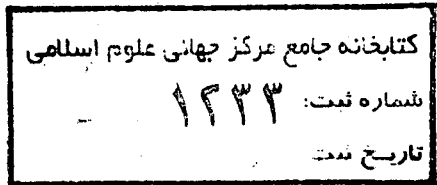 کتابخانه جامع مرکز جهانی علوم اسلامی
شماره ثبت: ۱۲۳۳
تاریخ ثبت